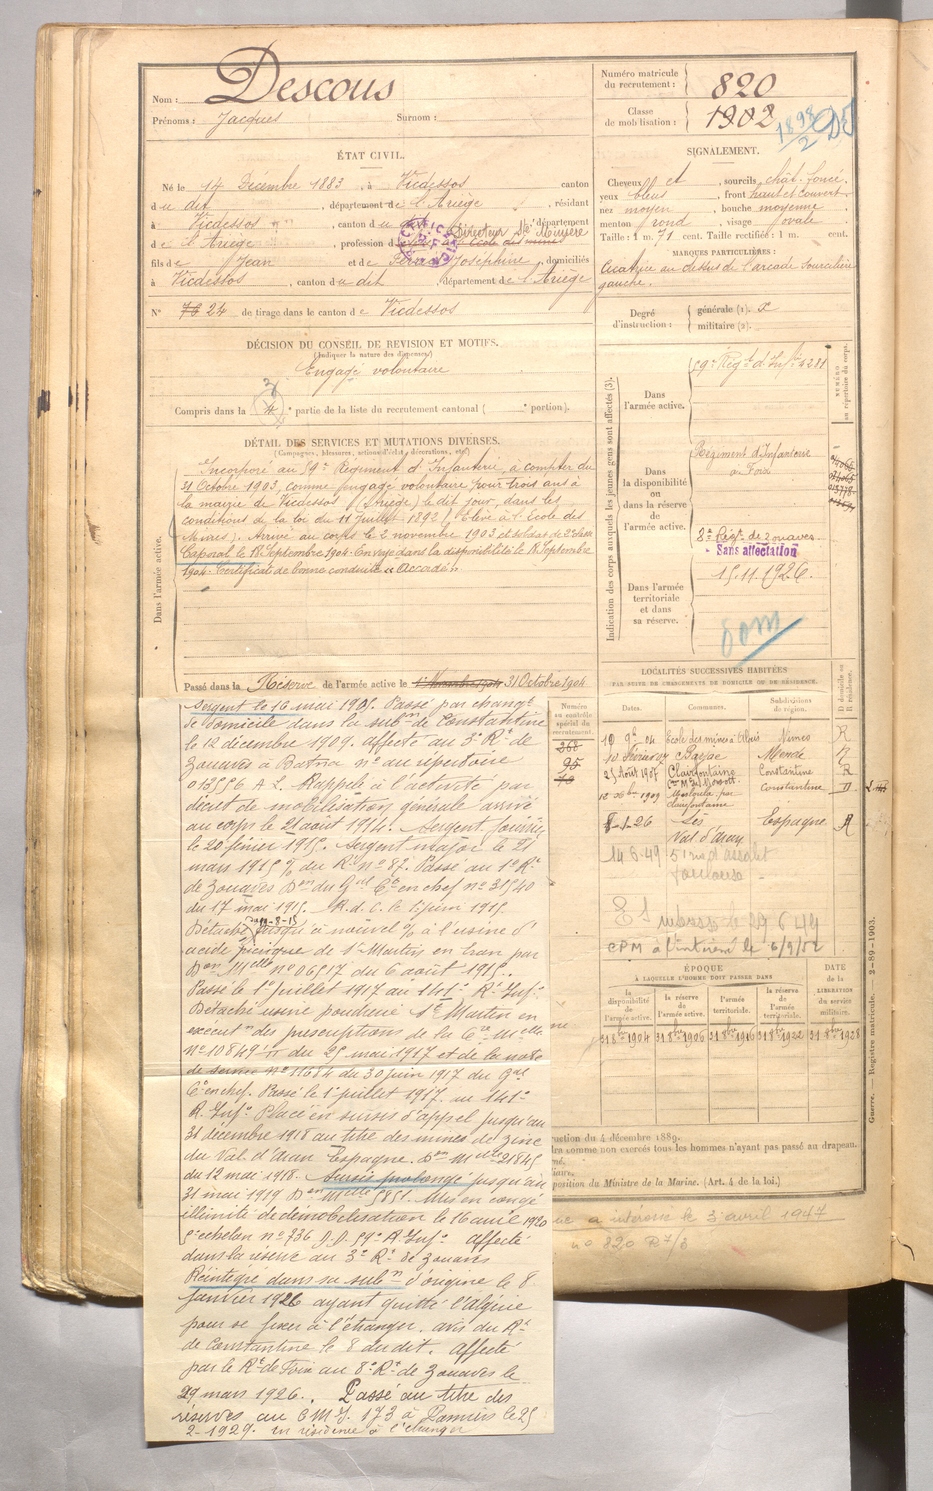 Nom : Descous
Prénoms : Jacques Surnom :
Numéro matricule du recrutement : 820
Classe de mobilisation : 1902
1898/2
ÉTAT CIVIL.
Né le 14 Décembre 1883, à Vicdessos canton
du dit, département de l'Ariège, résidant
à Vicdessos, canton du dit, département
de l'Ariège, profession de Directeur Sté Minière
élève à l'École des mines
fils de Jean et de Joséphine, domiciliés
à Vicdessos, canton du dit, département de l'Ariège
N° 76 24 de tirage dans le canton de Vicdessos
SIGNALEMENT.
Cheveux et, sourcils chât. foncé.
yeux bleus, front haut et couvert
nez moyen, bouche moyenne
menton rond, visage ovale
Taille : 1 m. 71 cent. Taille rectifiée : 1 m. cent.
MARQUES PARTICULIÈRES :
Cicatrice au dessus de l'arcade sourcilière
gauche.
Degré d'instruction : générale (1). x
militaire (2).
DÉCISION DU CONSEIL DE REVISION ET MOTIFS.
(Indiquer la nature des dispenses)
Engagé volontaire
Compris dans la 3 4e partie de la liste du recrutement cantonal ( e portion).
DÉTAIL DES SERVICES ET MUTATIONS DIVERSES.
(Campagnes, blessures, actions d'éclat, décorations, etc.)
Dans l'armée active.
Incorporé au 59e Régiment d'Infanterie, à compter du
31 Octobre 1903, comme engagé volontaire pour trois ans à
la mairie de Vicdessos (Ariège) le dit jour, dans les
conditions de la loi du 11 Juillet 1892 (Elève à l'Ecole des
Mines). Arrivé au corps le 2 novembre 1903 et soldat de 2e classe
Caporal le 18 Septembre 1904. Envoyé dans la disponibilité le 18 Septembre
1904. Certificat de bonne conduite « Accordé »
Passé dans la Réserve de l'armée active le 1er Novembre 1904 31 Octobre 1904
Sergent le 16 mai 1905. Passé par changt
de domicile dans la subon de Constantine
le 12 décembre 1909. affecté au 3e Rt de
Zouaves à Batna no au répertoire
013556 A L. Rappelé à l'activité par
décret de mobilisation générale arrivé
au corps le 21 août 1914. Sergent fourrier
le 20 février 1915. Sergent major le 21
mars 1915 % du Rt no 87. Passé au 1er Rt
de Zouaves Don du Gal Ct en chef no 31540
du 17 mai 1915. R. d. C. le 6 juin 1915.
Détaché 10-8-15 jusqu'à nouvel % à l'usine d'
acide picrique de St Martin en Crau par
Don Mlle no 06517 du 6 août 1915.
Passé le 1er Juillet 1917 au 141e Rt Infie
Détaché usine poudrerie St Martin en
exécuton des prescriptions de la Cre Mlle
No 10849 du 25 mai 1917 et de la note
de service No 11684 du 30 juin 1917 du Gal
Ct en chef. Passé le 1er juillet 1917 au 141e
R. Infie Placé en sursis d'appel jusqu'au
31 décembre 1918 au titre des mines de zinc
du Val d'Aran Espagne. Don Mlle 21845
du 12 mai 1918. Sursis prolongé jusqu'au
31 mai 1919 Don Mlle 5851. Mis en congé
illimité de démobilisation le 16 avril 1920
echelon no 736 59e R. Infie affecté
dans la réserve du 3e Rt de Zouaves
Réintégré dans sa subon d'origine le 8
janvier 1926 ayant quitté l'algérie
pour se fixer à l'étranger. avis du Rt
de Constantine le 8 du dit. Affecté
par le Rt de Foix au 8e Rt de Zouaves le
29 mars 1926. Passé au titre des
réserves au C M I. 173 à Pamiers le 25
2-1929. en résidence à l'étranger
Indication des corps auxquels les jeunes gens sont affectés (3).
NUMÉRO au répertoire du corps.
Dans l'armée active.
59e Régt d'Infie 4281
Dans la disponibilité ou dans la réserve de l'armée active.
Régiment d'Infanterie
à Foix
8e Régt de Zouaves
Sans affectation
15.11.1926.
Dans l'armée territoriale et dans sa réserve.
Numéro au contrôle spécial du recrutement.
268
95
LOCALITÉS SUCCESSIVES HABITÉES
PAR SUITE DE CHANGEMENTS DE DOMICILE OU DE RÉSIDENCE.
Dates. Communes. Subdivisions de région. D domicile ou R résidence.
19 9bre 04 Ecole des mines à Alais Nimes R
Mende R
25 Août 1907 Clairfontaine Constantine R
12 Xbre 1909 Constantine D
Clairfontaine
8-1-26 Les Espagne R
Val d'Aran
14.6.49 Toulouse
29 6 49
CPM à l'intéressé le 6/9/52
ÉPOQUE
À LAQUELLE L'HOMME DOIT PASSER DANS
DATE de la LIBÉRATION du service militaire.
la disponibilité de l'armée active. la réserve de l'armée active. l'armée territoriale. la réserve de l'armée territoriale.
31 8bre 1904 31 8bre 1906 31 8bre 1916 31 8bre 1922 31 8bre 1928
Guerre. — Registre matricule. — 2-89-1903.
uction du 4 décembre 1889.
dra comme non exercés tous les hommes n'ayant pas passé au drapeau.
position du Ministre de la Marine. (Art. 4 de la loi.)
à intéressé le 3 avril 1947
no 820